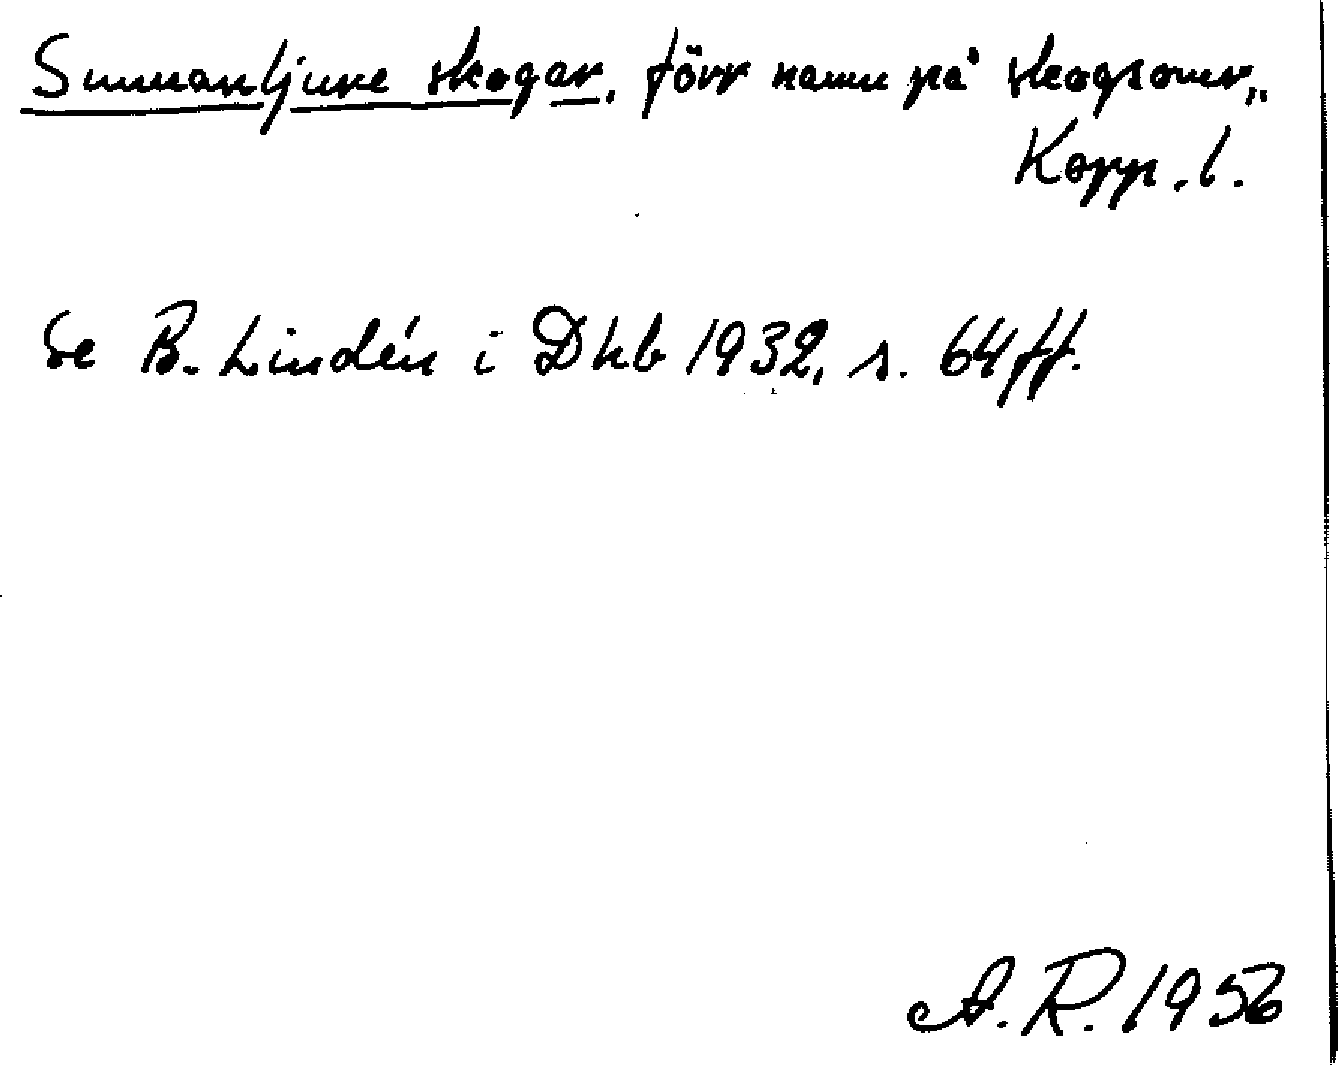 Sunnanljure skogar, förr namn på skogsomr.,
Kopp. l.
Se B. Lindén i Dhb 1932, s. 64 ff.
A. R. 1956